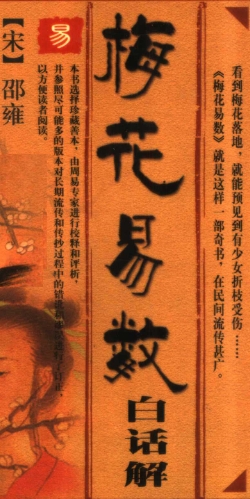 看到梅花落地，就能预见到有少女折枝受伤……
《梅花易数》就是这样一部奇书，在民间流传甚广。
梅花易数
白话解
易
【宋】邵雍
本书选择珍藏善本，由周易专家进行校释和评析，
并参照尽可能多的版本对长期流传和传抄过程中的错误
以方便读者阅读。